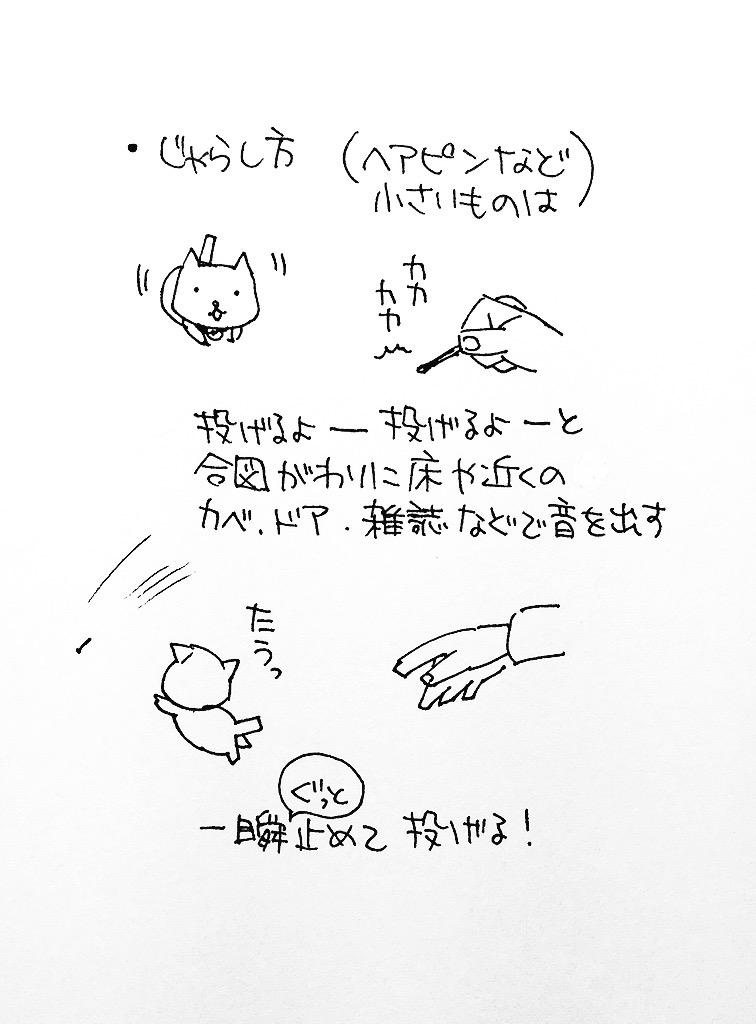 ・じゃらし方 (ヘアピンなど
小さいものは)
カカカカ
投げるよー投げるよーと
合図がわりに床や近くの
カベ、ドア・雑誌などで音を出す
たうっ
ぐっと
一瞬止めて投げる!